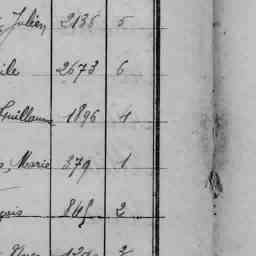 Julien 2136 5
ile 2673 6
Guillaume 1896 4
Marie 279 1
çois 845 2